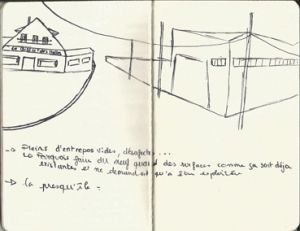 → Pleins d'entrepos vides, désafectés...
Pourquoi faire du neuf quand des surfaces comme ça sont déjà
existantes et ne demandent qu'à être exploitées
→ La presqu'île :